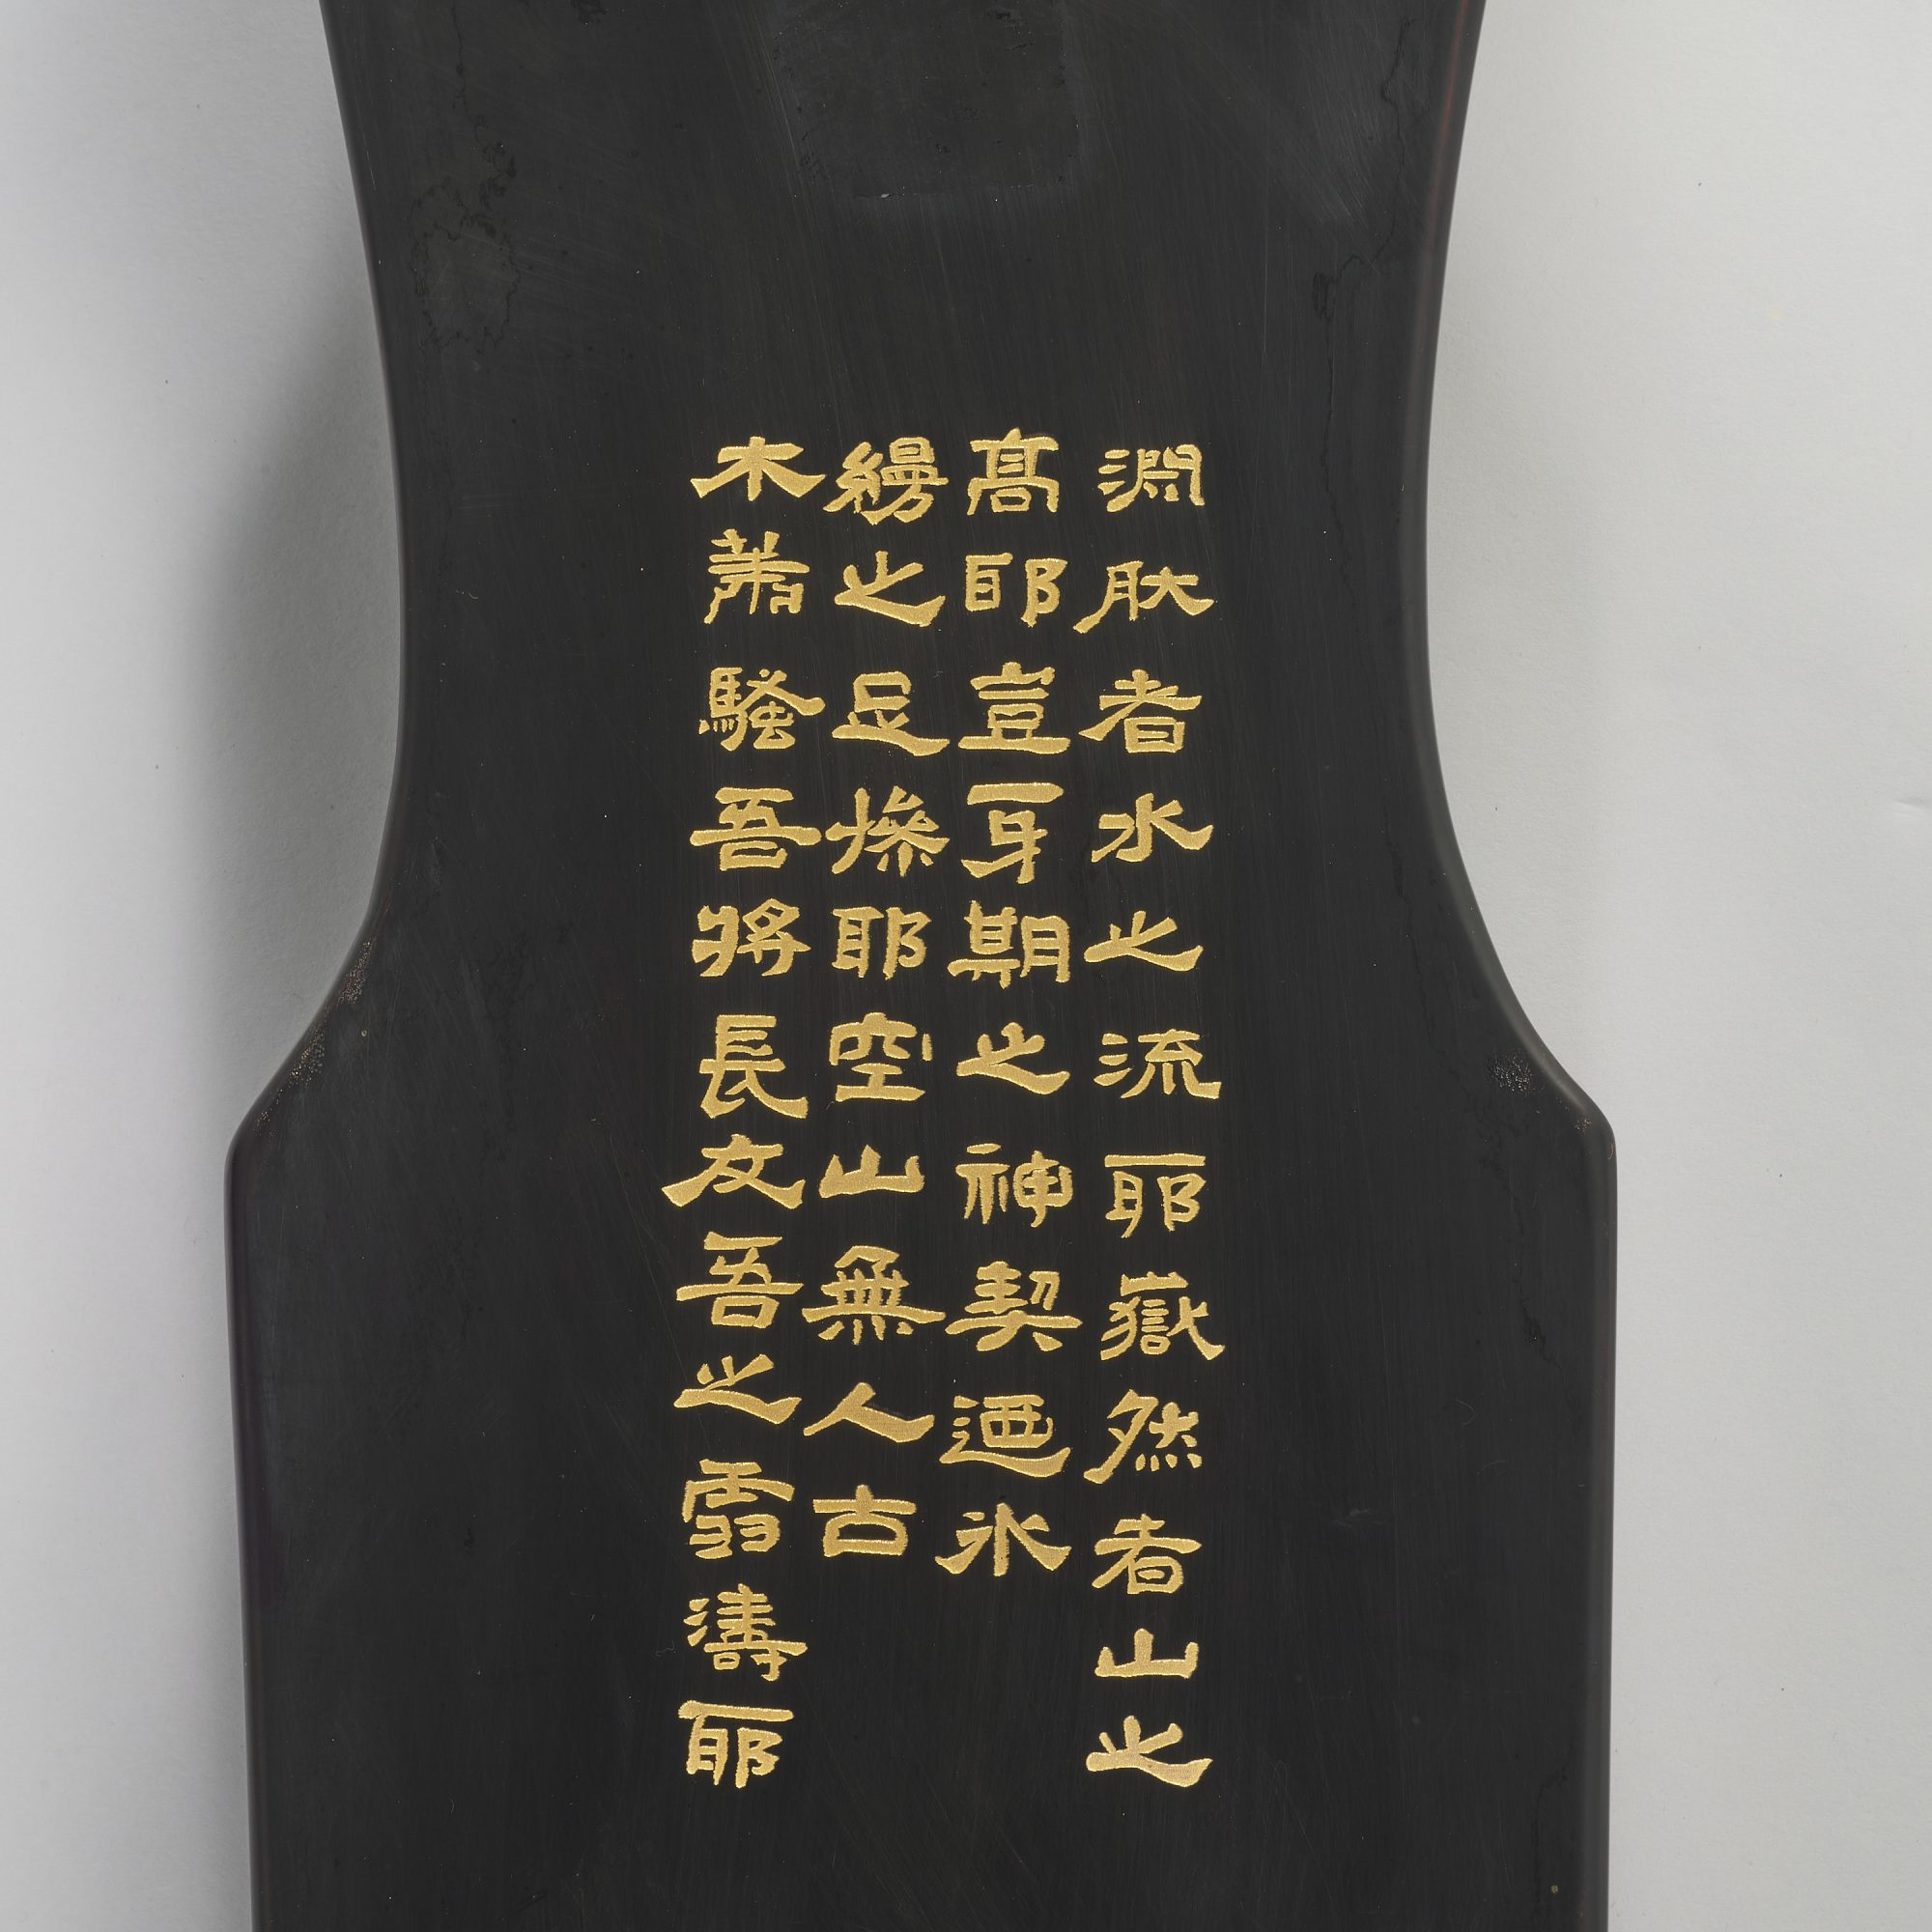 淵肰者水之流耶嶽然者山之
髙耶豈牙期之神契迺氷
縵之足操耶空山無人古
木蕭騷吾將長友吾之雪濤耶